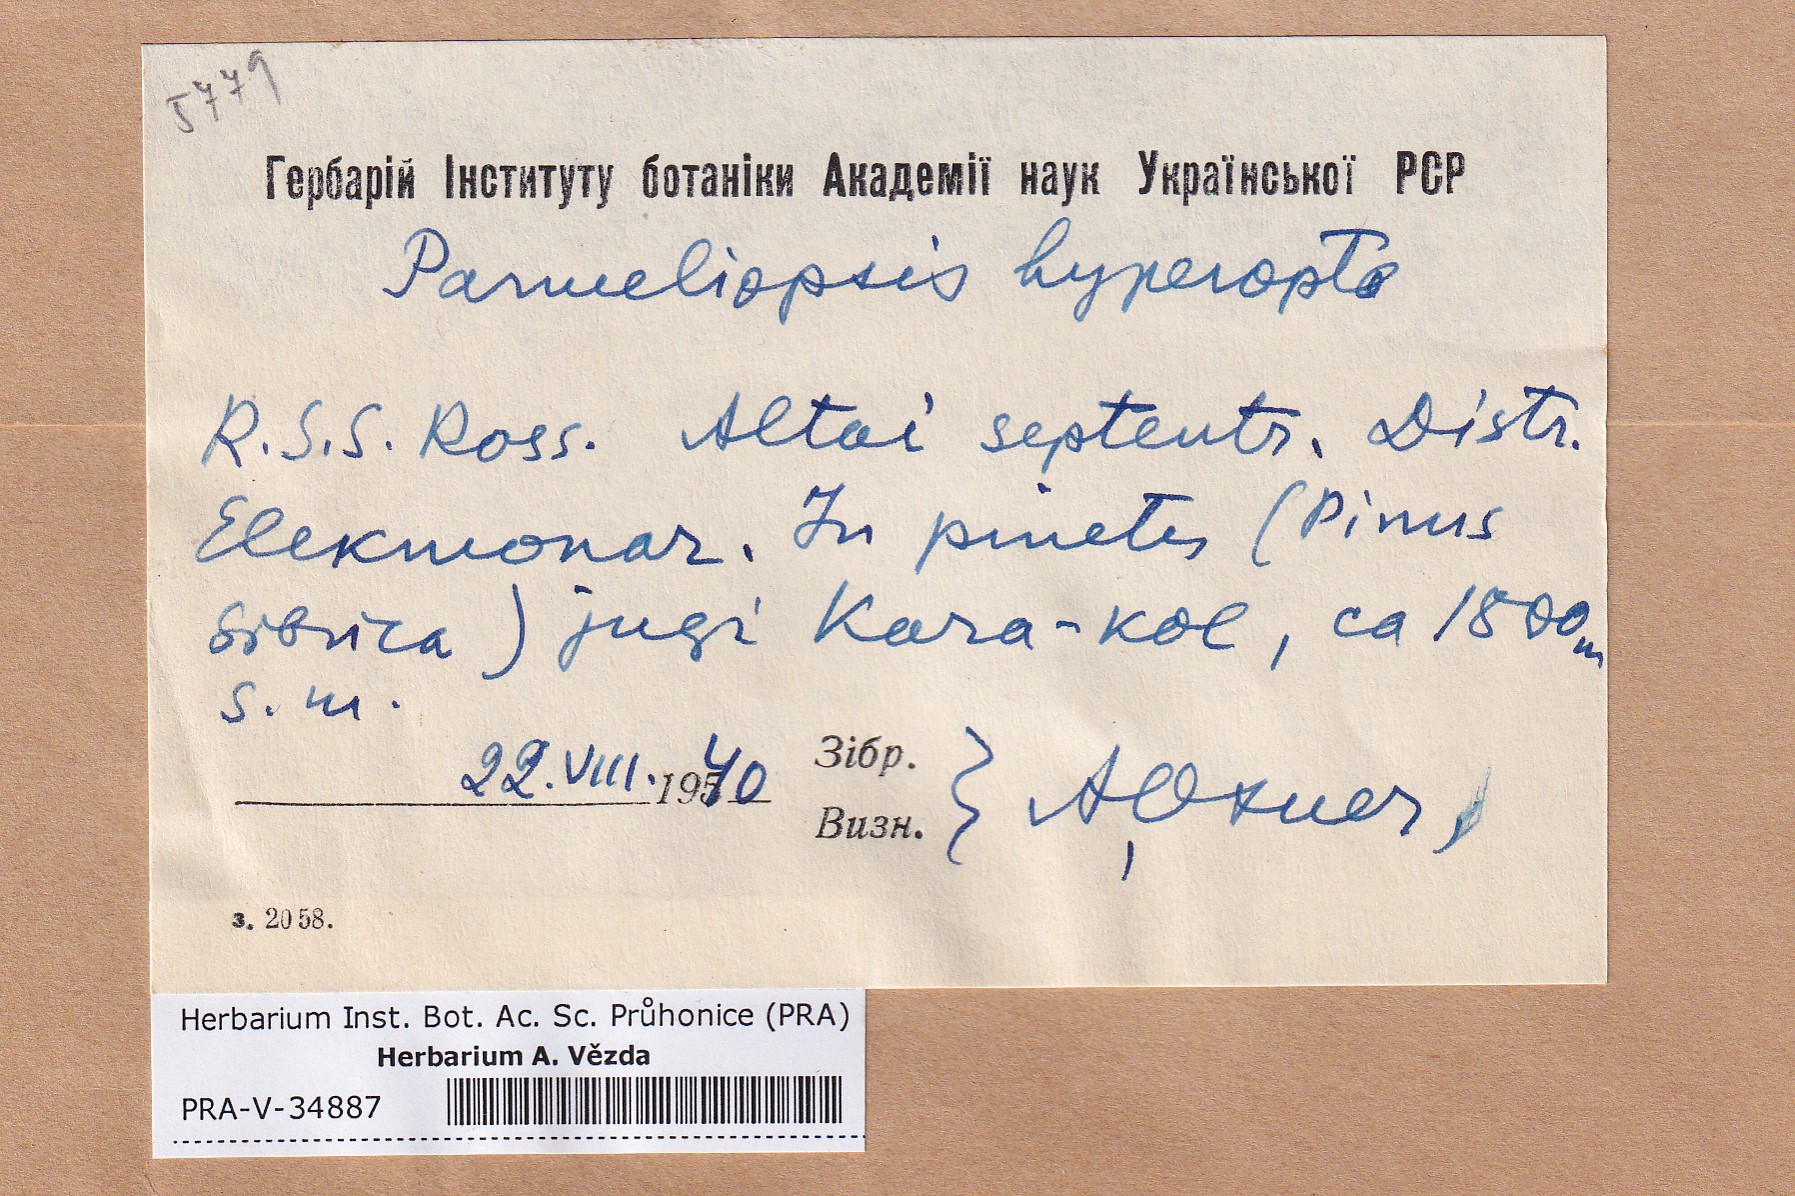 5779
Гербарій Інституту ботаніки Академії наук Української РСР
Parmeliopsis hyperopta
R.S.S. Ross. Altai septentr. Distr.
Elekmonar. In pinetis (Pinus
sibirica) jugi Kara-kol, ca 1800 m
s. m.
22.VIII.1940
Зібр.
Визн.
} A. Oxner,
з. 2058.
Herbarium Inst. Bot. Ac. Sc. Průhonice (PRA)
Herbarium A. Vězda
PRA-V-34887